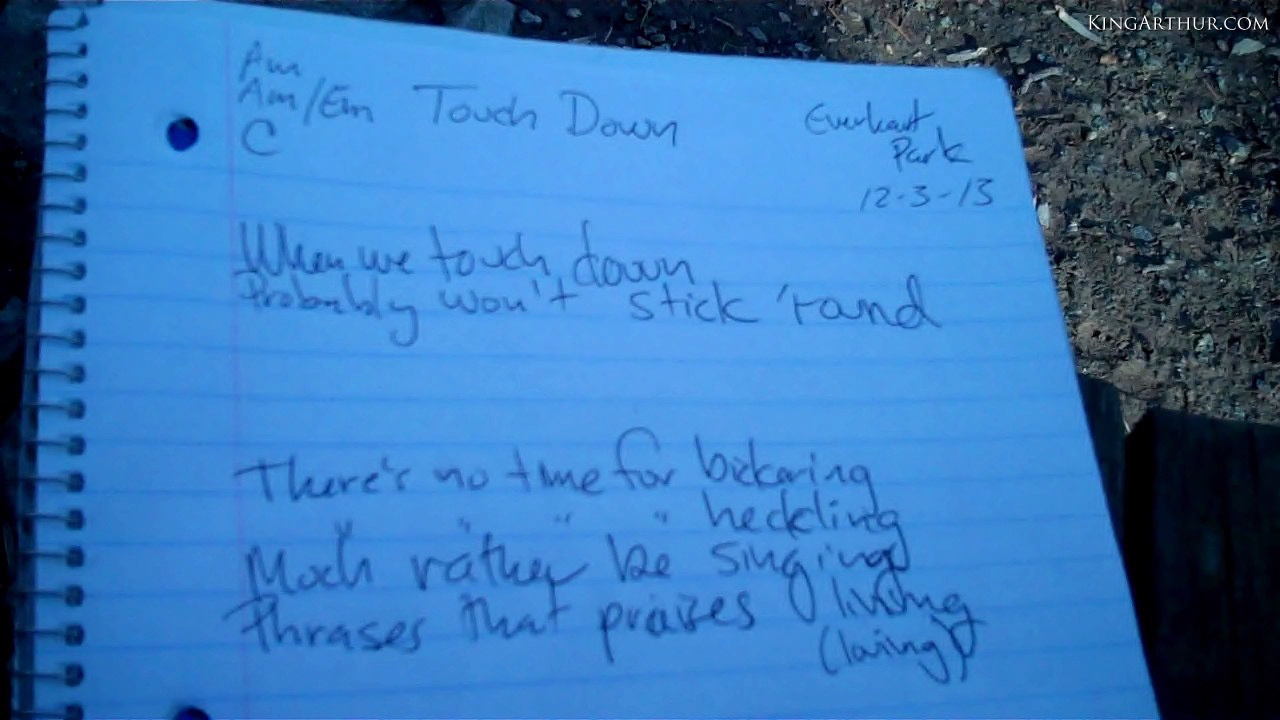 KINGARTHUR.COM
Am
Am/Em Touch Down
C
Everhart
Park
12-3-13
When we touch down
Probably won't stick 'rand
There's no time for bickering
" " " " heckling
Much rather be singing
Phrases that praises living
(loving)